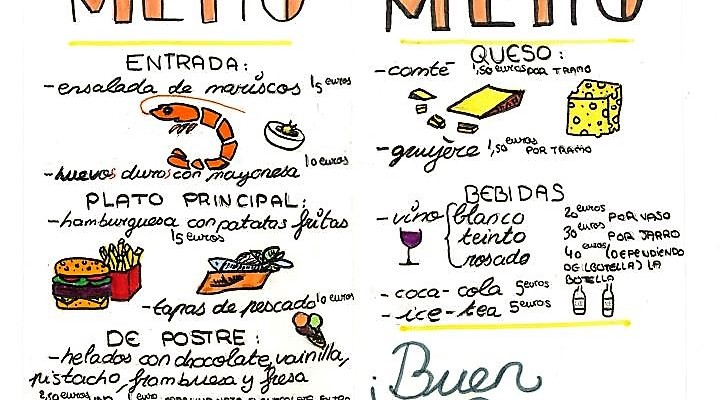 MENU
ENTRADA:
-ensalada de mariscos 15 euros
-huevos duros con mayonesa 10 euros
PLATO PRINCIPAL:
-hamburguesa con patatas fritas
15 euros
-tapas de pescado 10 euros
DE POSTRE:
-helados con chocolate, vainilla,
pistacho, frambuesa y fresa
MENU
QUESO:
-comté 1,50 euros POR TRAMO
-gruyère 1,50 euros POR TRAMO
BEBIDAS
-vino blanco 20 euros POR VASO
tinto 30 euros POR JARRO
rosado 40 euros (DEPENDIENDO
DE (BOTELLA) LA
BOTELLA
-coca-cola 5 euros
-ice-tea 5 euros
¡Buen